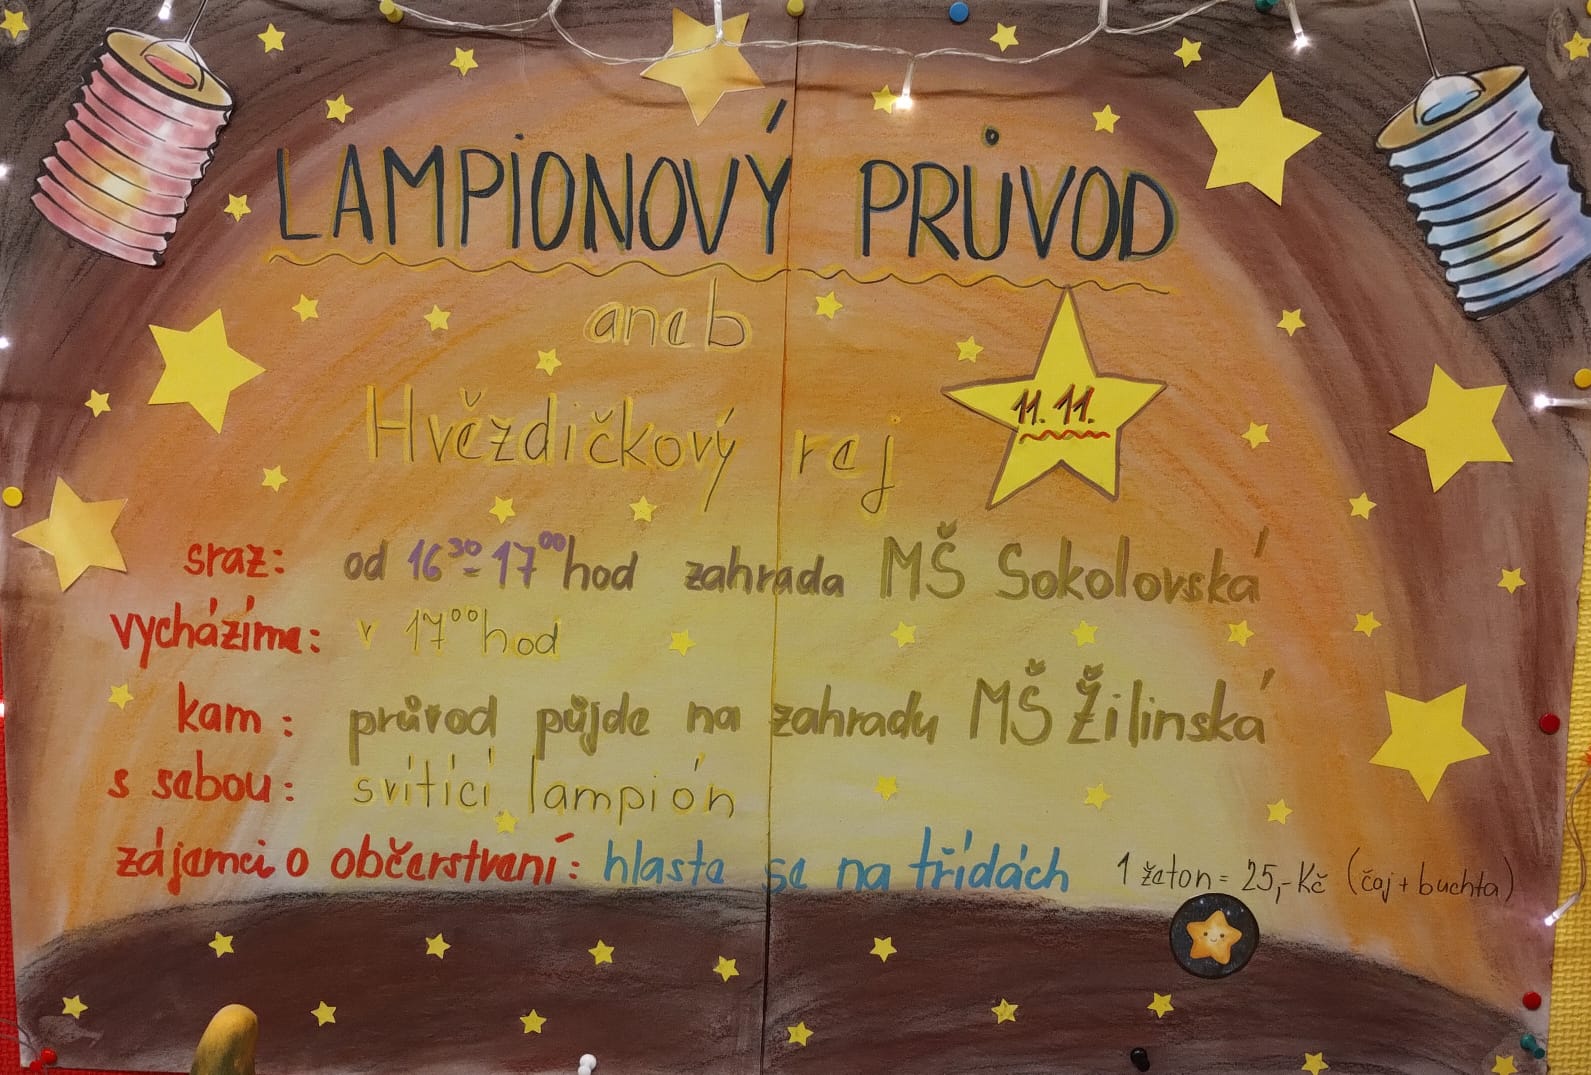 LAMPIONOVÝ PRŮVOD
aneb
Hvězdičkový rej
11.11.
sraz: od 16³⁰-17⁰⁰hod zahrada MŠ Sokolovská
vycházíme: v 17⁰⁰hod
kam: průvod půjde na zahradu MŠ Žilinská
s sebou: svítící lampión
zájemci o občerstvení: hlaste se na třídách 1 žeton = 25,-Kč (čaj + buchta)